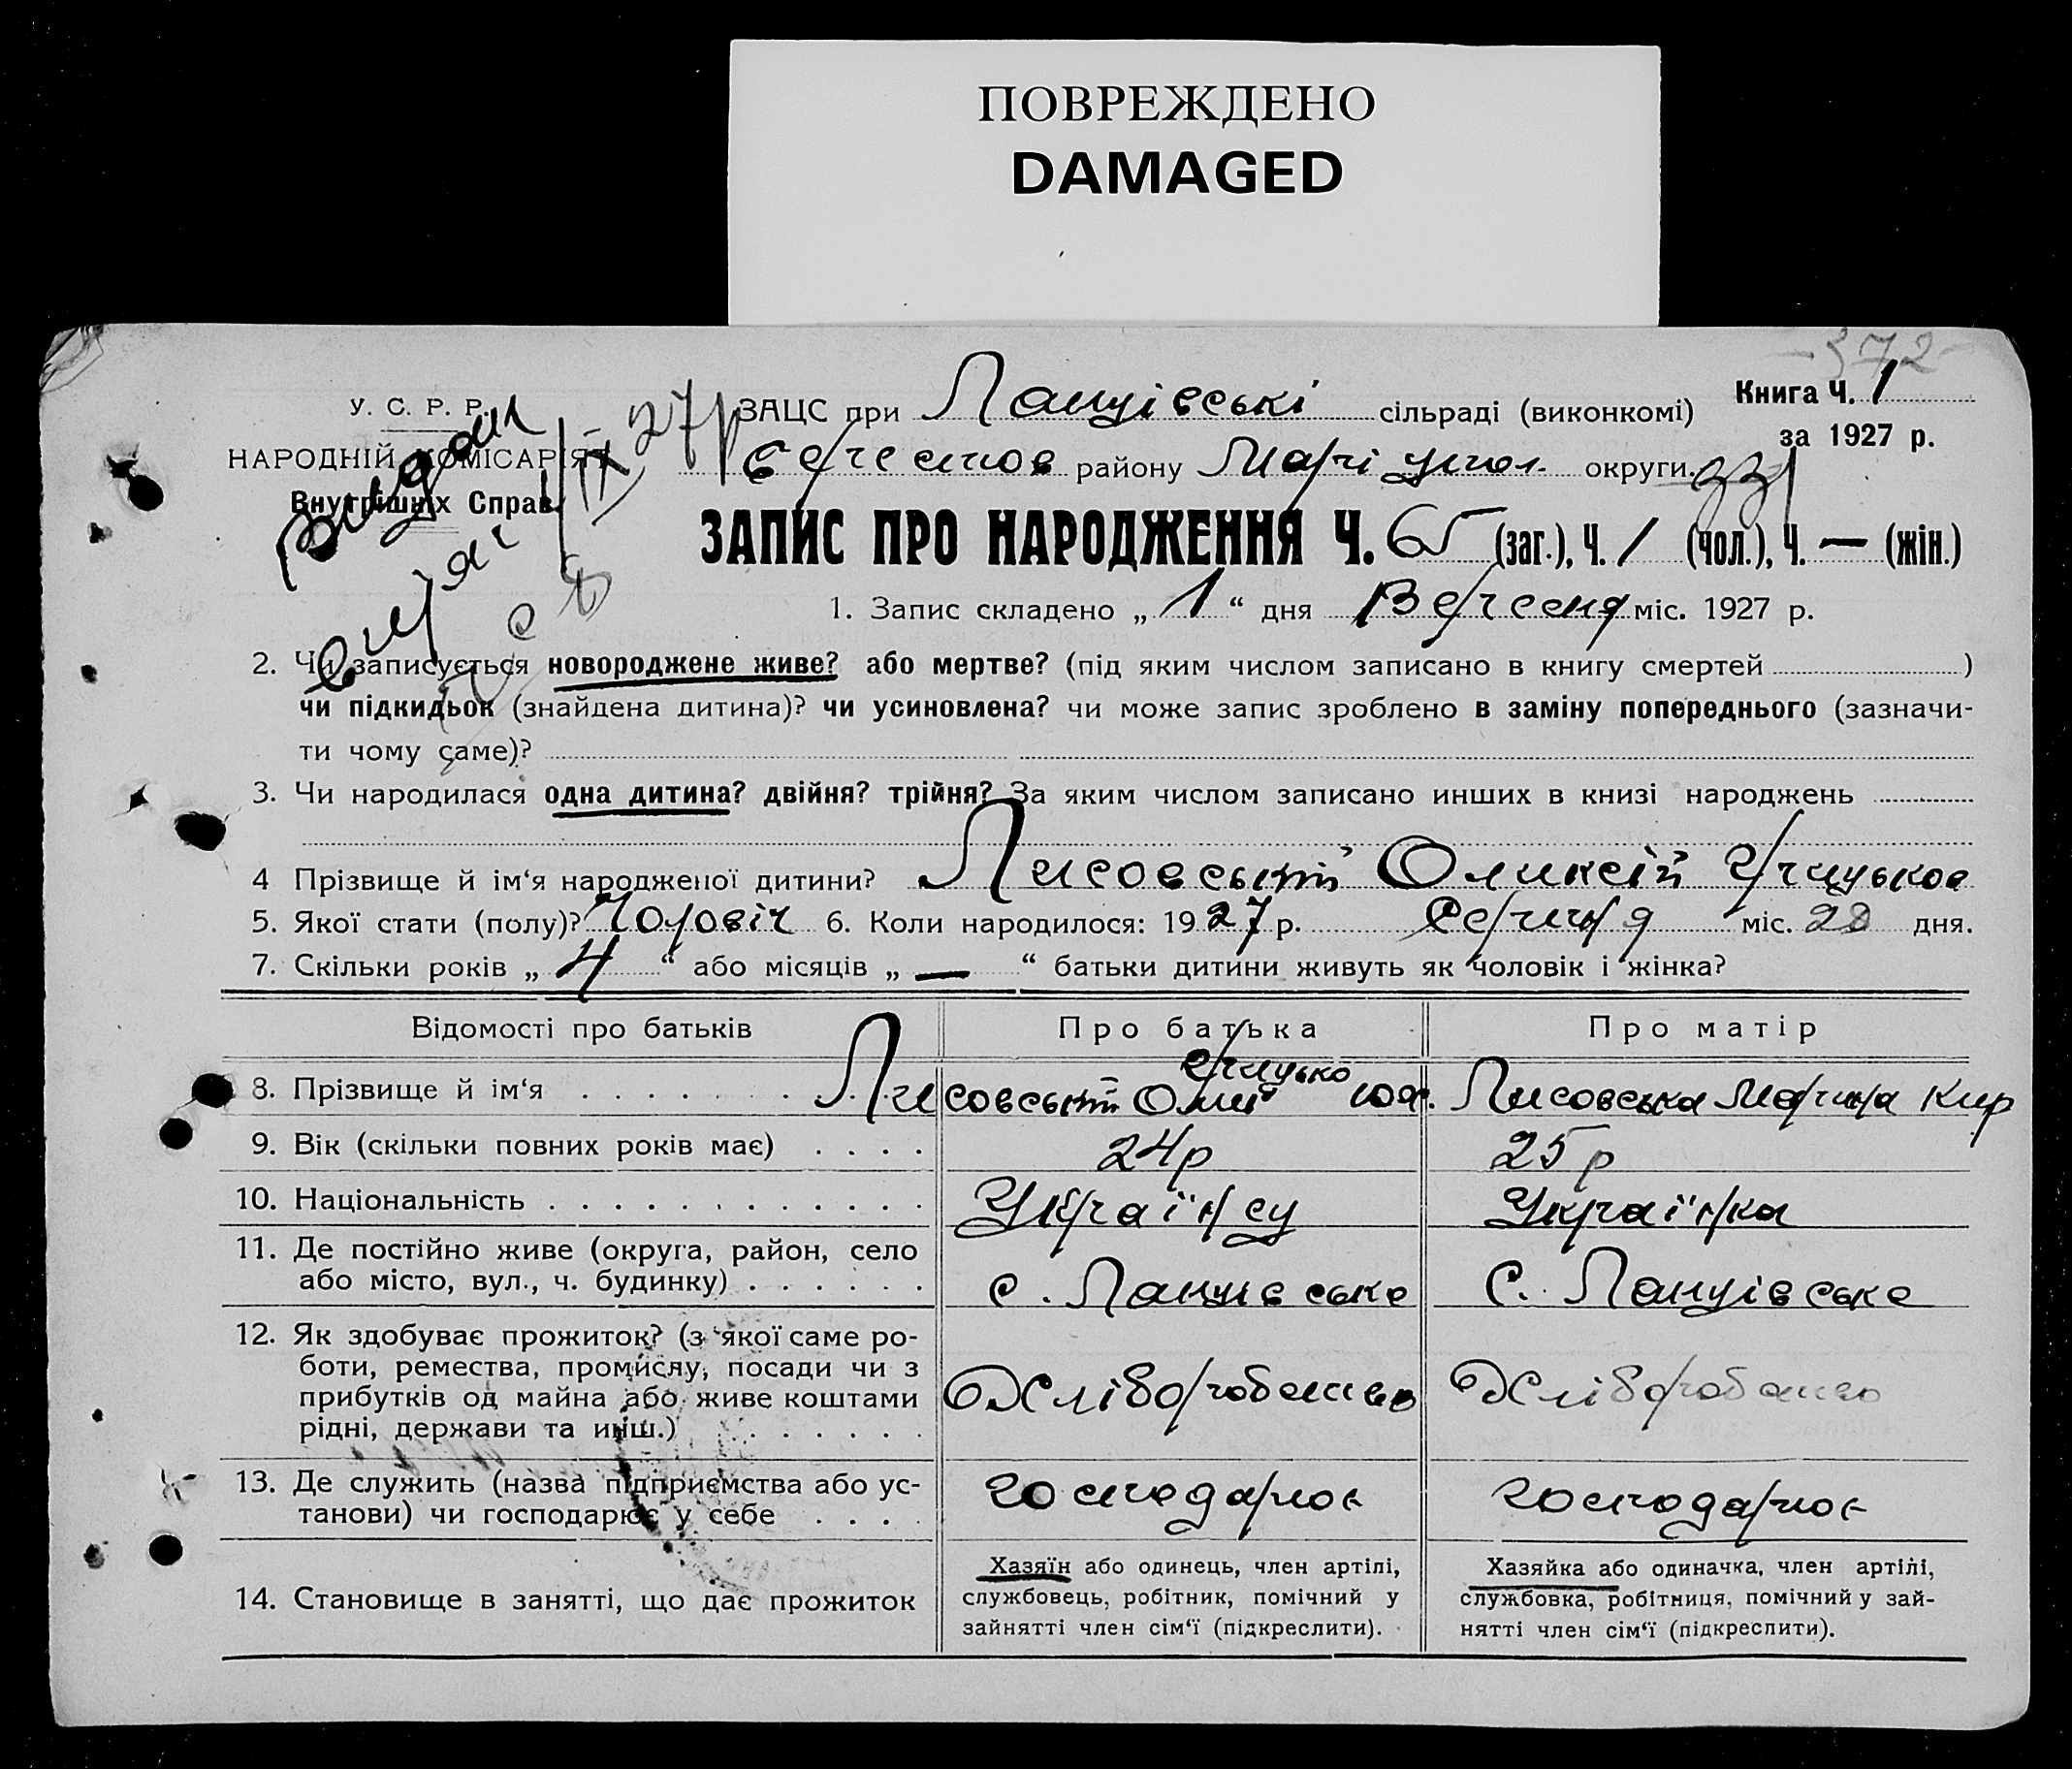 ПОВРЕЖДЕНО
DAMAGED
372
У. С. Р. Р.
НАРОДНІЙ КОМІСАРІЯТ
Внутрішніх Справ
ЗАЦС при Ланцівські сільраді (виконкомі)
Книга Ч. 1
за 1927 р.
району Маріупол. округи.
ЗАПИС ПРО НАРОДЖЕННЯ Ч. 65 (заг.), Ч. / (чол.), Ч. — (жін.)
1. Запис складено „ 1 “ дня Вересня міс. 1927 р.
2. Чи записується новороджене живе? або мертве? (під яким числом записано в книгу смертей )
чи підкидьок (знайдена дитина)? чи усиновлена? чи може запис зроблено в заміну попереднього (зазначи-
ти чому саме)?
3. Чи народилася одна дитина? двійня? трійня? За яким числом записано инших в книзі народжень
4 Прізвище й ім‘я народженої дитини? Лисовський Оликсій
5. Якої стати (полу)? Чоловіч 6. Коли народилося: 1927 р. Серпня міс. 28 дня.
7. Скільки років „ 4 “ або місяців „ — “ батьки дитини живуть як чоловік і жінка?
Відомості про батьків
Про батька
Про матір
8. Прізвище й ім‘я Лисовський Лисовська Марина Кир
9. Вік (скільки повних років має) 24р 25р
10. Національність Українец Українка
11. Де постійно живе (округа, район, село
або місто, вул., ч. будинку) с. Ланцівське с. Ланцівське
12. Як здобуває прожиток? (з якої саме ро-
боти, ремества, промислу, посади чи з
прибутків од майна або живе коштами
рідні, держави та инш.) Хліборобство Хліборобство
13. Де служить (назва підприємства або ус-
танови) чи господарює у себе господарює господарює
14. Становище в занятті, що дає прожиток
Хазяїн або одинець, член артілі,
службовець, робітник, помічний у
зайнятті член сім‘ї (підкреслити).
Хазяйка або одиначка, член артілі,
службовка, робітниця, помічний у зай-
нятті член сім‘ї (підкреслити).